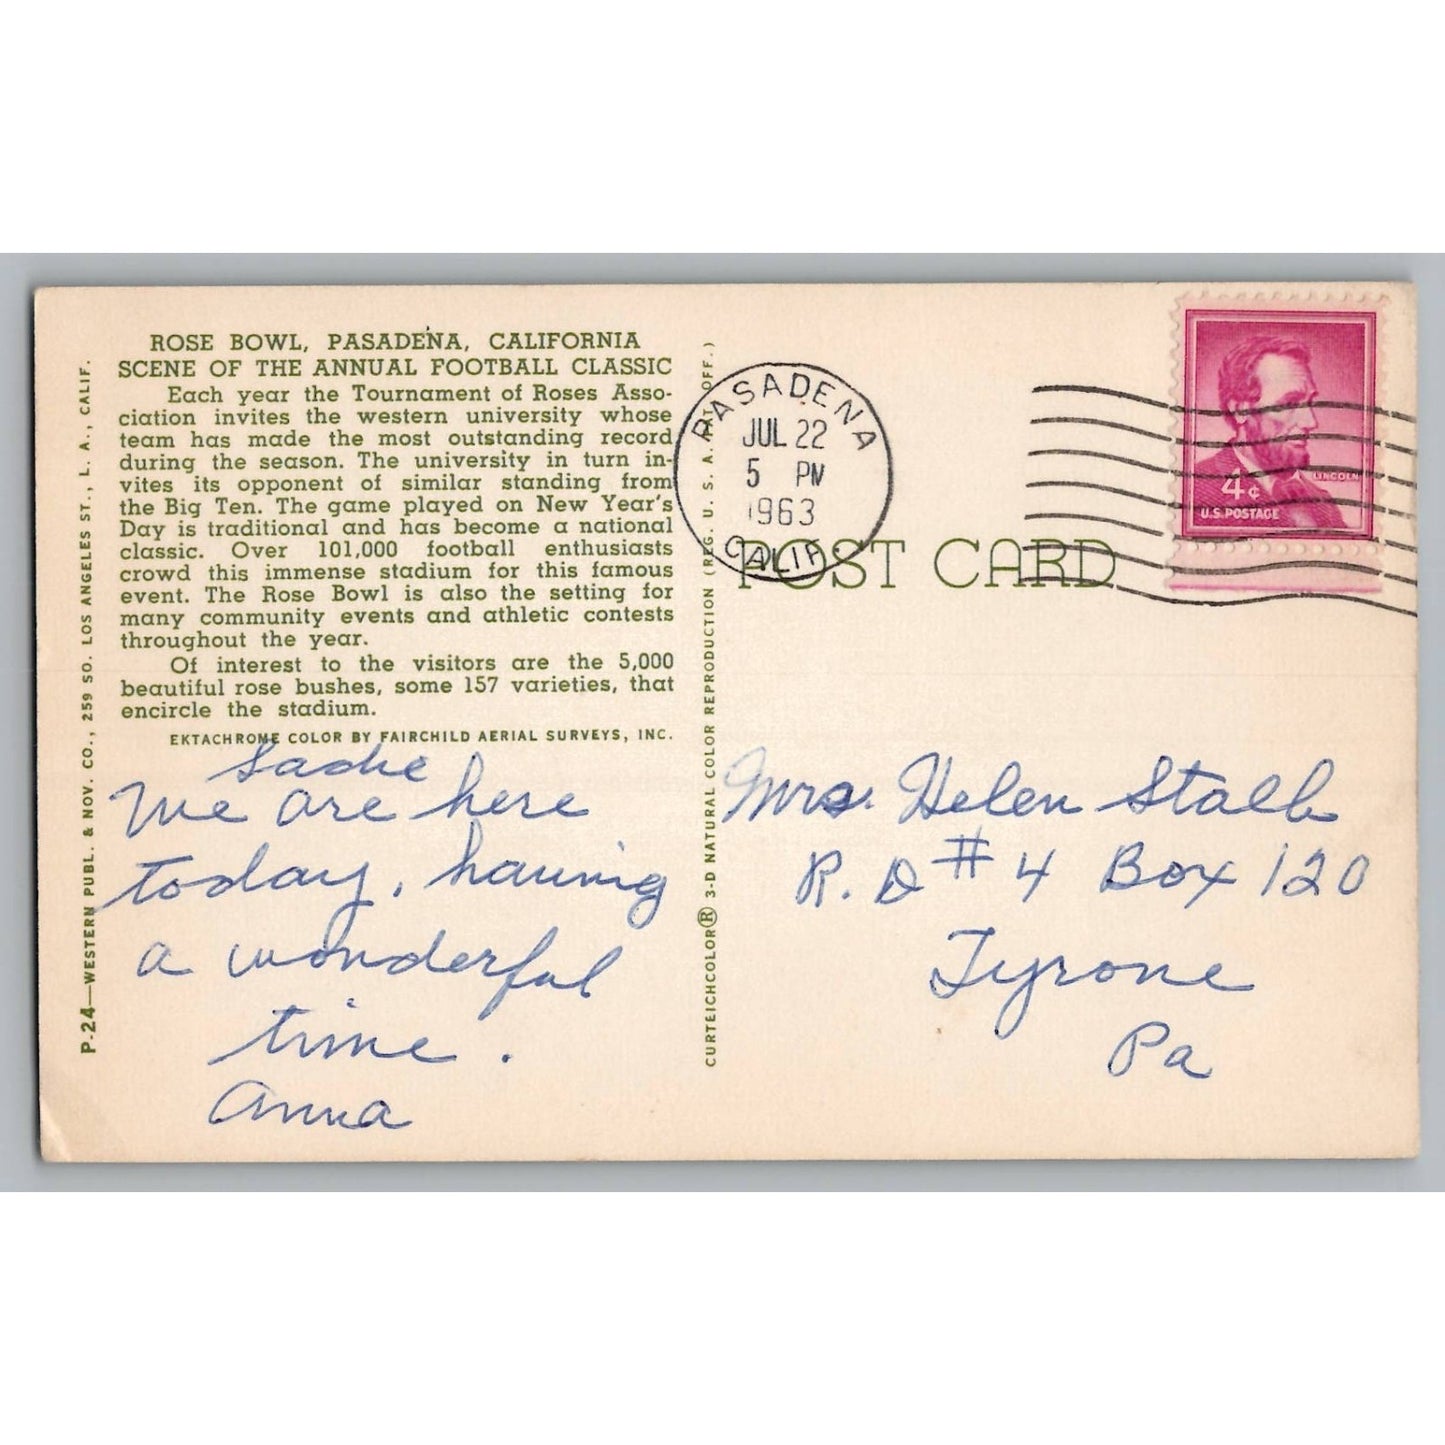 ROSE BOWL, PASADENA, CALIFORNIA
SCENE OF THE ANNUAL FOOTBALL CLASSIC
Each year the Tournament of Roses Asso-
ciation invites the western university whose
team has made the most outstanding record
during the season. The university in turn in-
vites its opponent of similar standing from
the Big Ten. The game played on New Year's
Day is traditional and has become a national
classic. Over 101,000 football enthusiasts
crowd this immense stadium for this famous
event. The Rose Bowl is also the setting for
many community events and athletic contests
throughout the year.
Of interest to the visitors are the 5,000
beautiful rose bushes, some 157 varieties, that
encircle the stadium.
EKTACHROME COLOR BY FAIRCHILD AERIAL SURVEYS, INC.
P-24—WESTERN PUBL. & NOV. CO., 259 SO. LOS ANGELES ST., L. A., CALIF.
Sadie
We are here
today, having
a wonderful
time.
Anna
CURTEICHCOLOR® 3-D NATURAL COLOR REPRODUCTION (REG. U. S. A. PAT. OFF.)
PASADENA
JUL 22
5 PM
1963
CALIF
POST CARD
LINCOLN
4¢
U.S. POSTAGE
Mrs. Helen Stalb
R. D # 4 Box 120
Tyrone
Pa